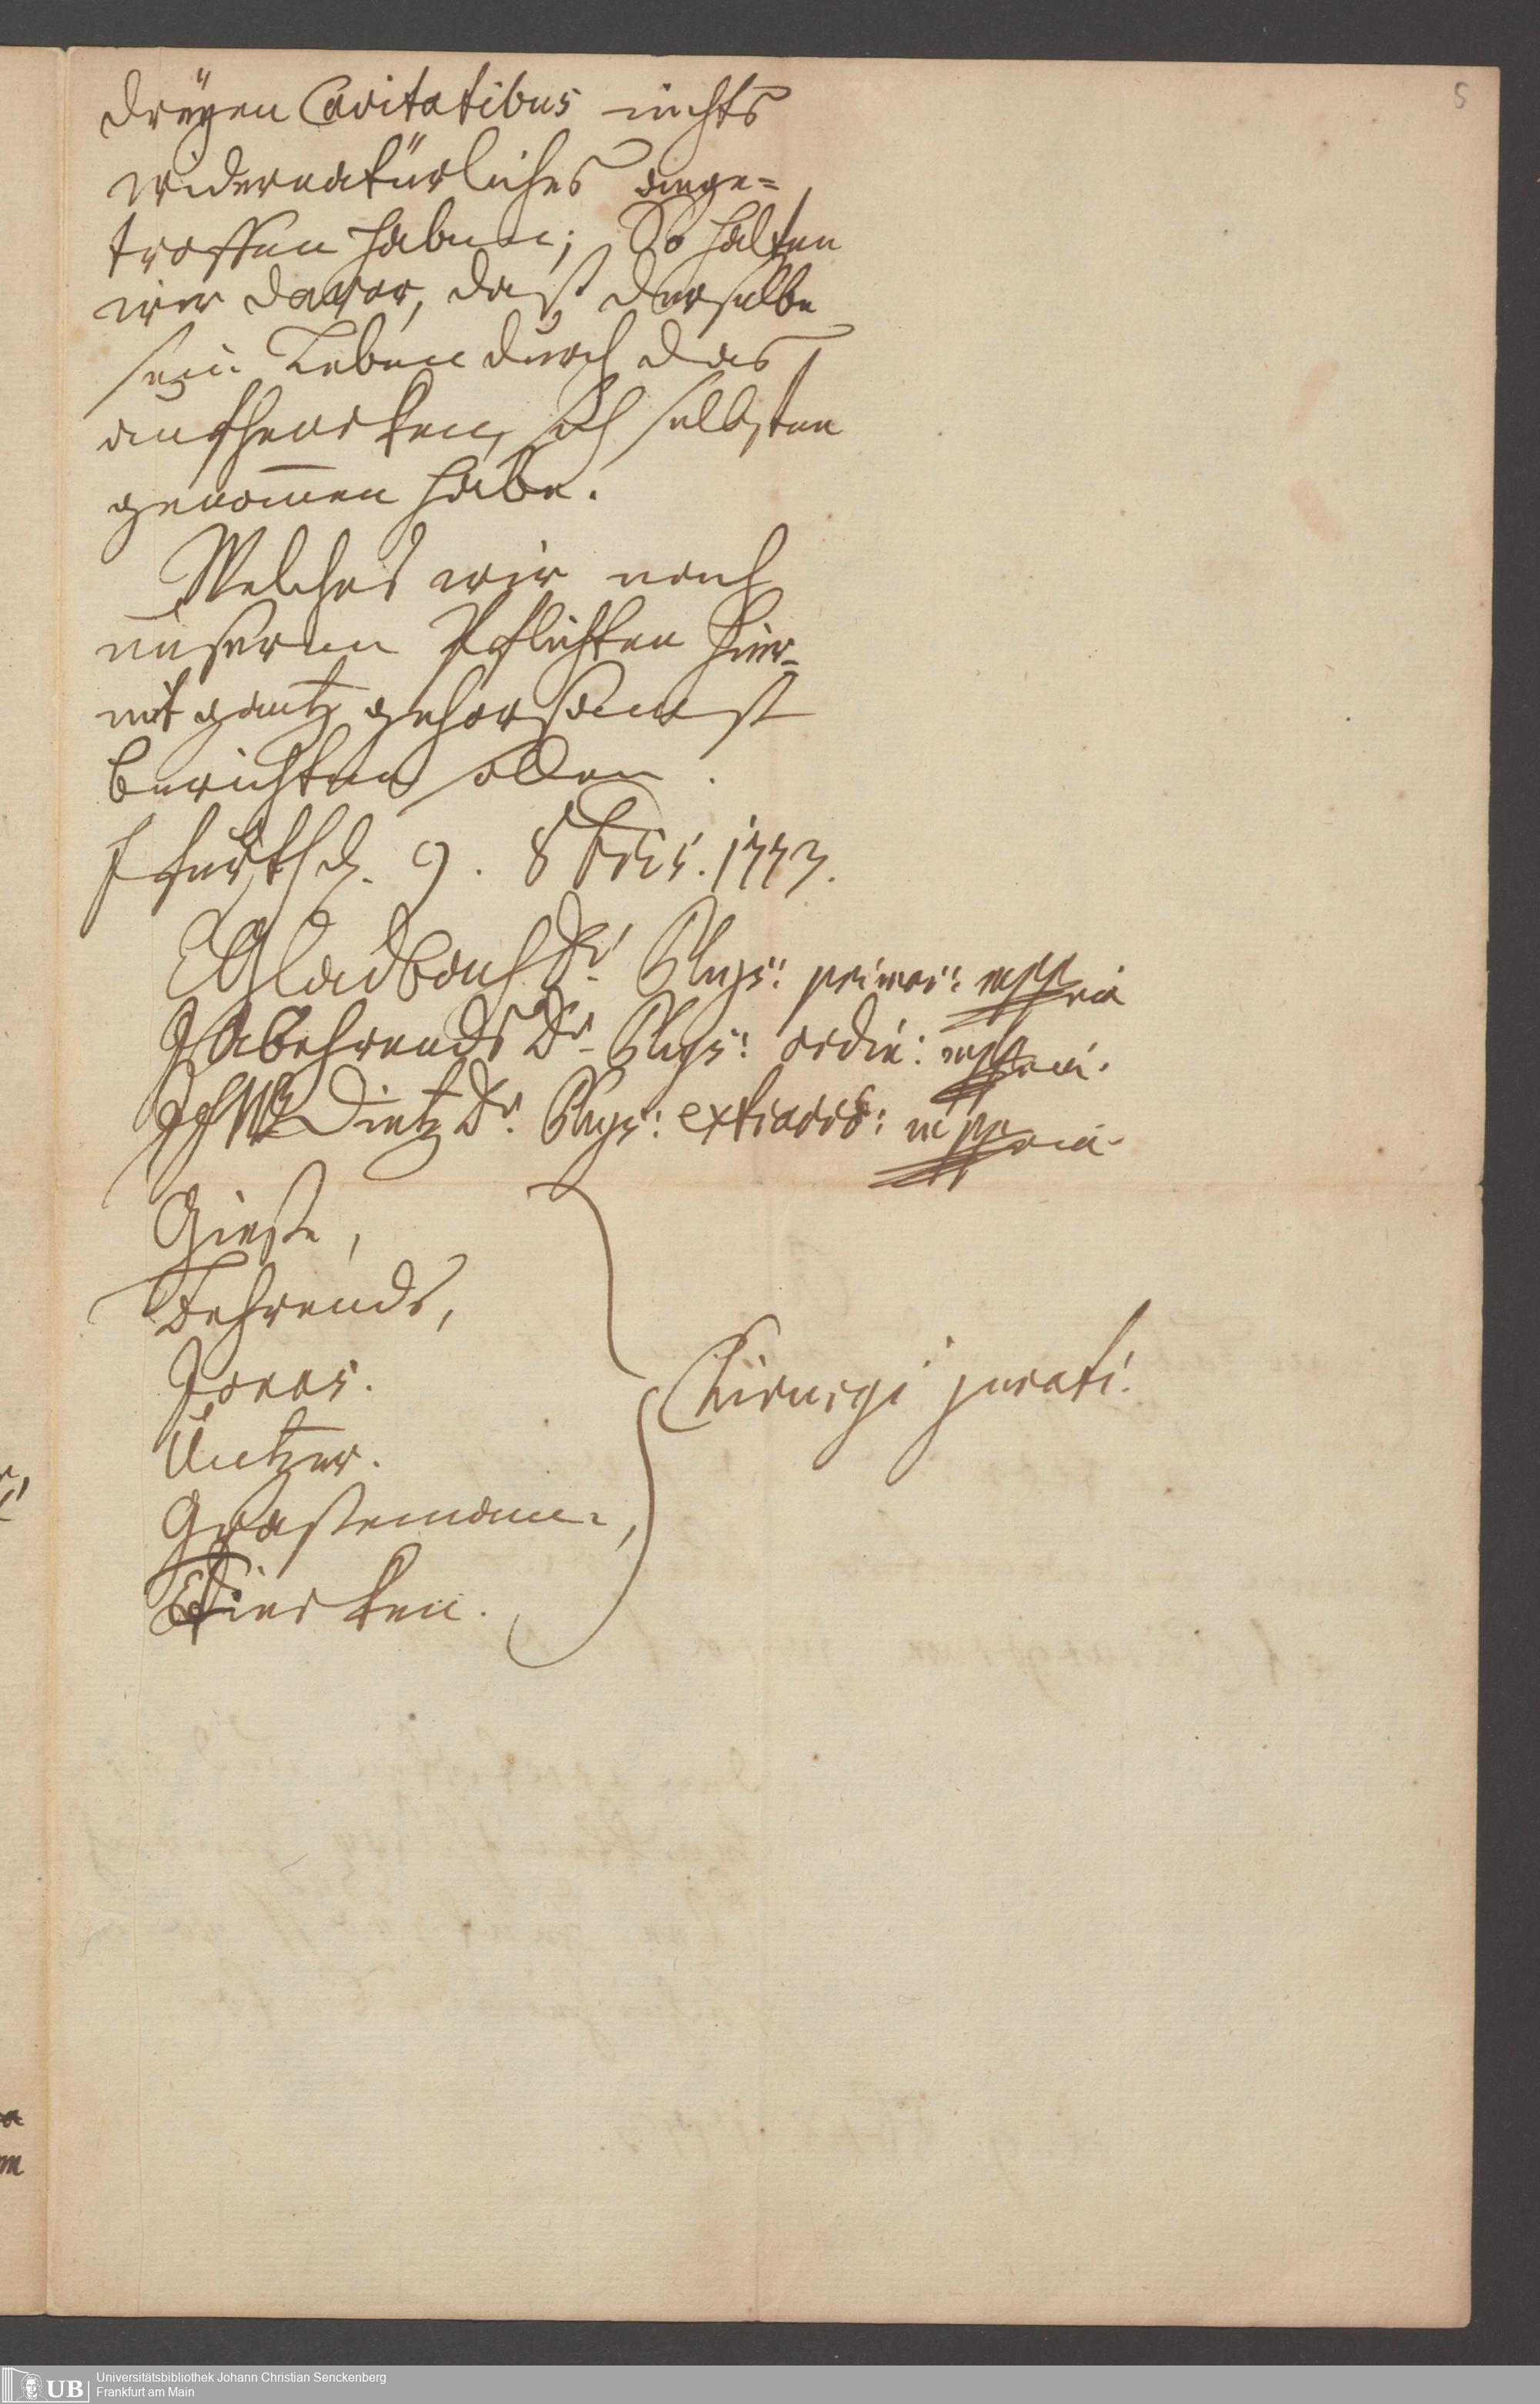 5
dreyen Cavitatibus nichts
widernatürliches ange-
troffen haben; So halten
wir davor, daß derselbe
sein Leben durch das
aufhencken, sich selbsten
genom̄en habe.
Welches wir nach
unseren Pflichten hier-
mit gantz gehorsamst
berichten sollen.
Ffurth d. 9. 8bris. 1773.
Gladbach Dr. Phys: primar: mppria
JABehrends Dr. Phys: ordin: mppria.
Dietz Dr. Phys: extraord: mppria.
Gieße,
Behrends,
Jonas.
Grassemann,
Chirurgi jurati.
UB
Universitätsbibliothek Johann Christian Senckenberg
Frankfurt am Main